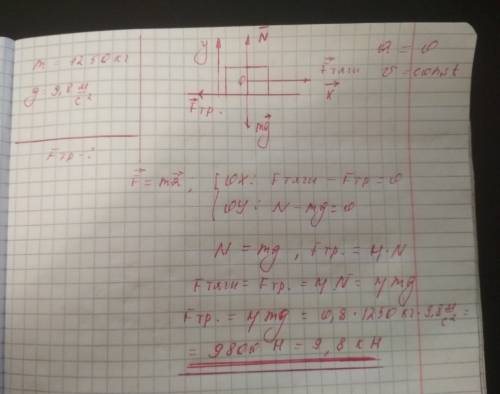 m = 1250 кг
g = 9,8 м/с²
Fтр - ?
y
N
a = 0
v = const
0
Fтяги
x
Fтр.
mg
F = ma, { OX: Fтяги - Fтр = 0
OY: N - mg = 0
N = mg, Fтр. = μ·N
Fтяги = Fтр. = μN = μmg
Fтр. = μmg = 0,8 · 1250 кг · 9,8 м/с² =
= 9800 Н = 9,8 кН